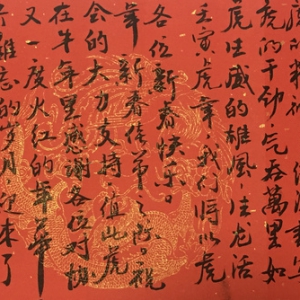 难忘的岁月迎来了
又一度火红的年华
在牛年里感谢各位对协
会的大力支持。值此虎
年新春佳节之际。祝
各位新春快乐。
壬寅虎年我们将以虎
虎旺盛的雄风,生龙活
虎的干劲气吞萬里如